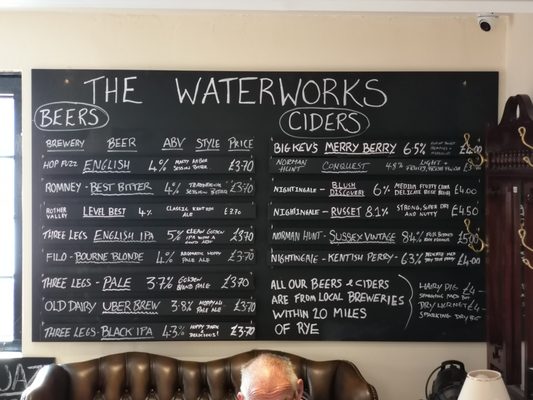 THE WATERWORKS
BEERS
BREWERY BEER ABV STYLE PRICE
HOP FUZZ ENGLISH 4% SESSION BITTER £3.70
ROMNEY - BEST BITTER 4% SESSION BITTER £3.70
ROTHER VALLEY LEVEL BEST 4% CLASSIC KENTISH ALE £3.70
THREE LEGS ENGLISH IPA 5% CLEAN GOLDEN IPA WITH A £3.70
FILO - BOURNE BLONDE 4% AROMATIC HOPPY PALE ALE £3.70
THREE LEGS - PALE 3.7% GOLDEN PALE £3.70
OLD DAIRY UBER BREW 3.8% HOPPY PALE ALE £3.70
THREE LEGS - BLACK IPA 4.3% HOPPY DARK & DELICIOUS! £3.70
CIDERS
BIG KEV'S MERRY BERRY 6.5%
NORMAN HUNT CONQUEST 4.8% LIGHT +
NIGHTINGALE - BLUSH DISCOVERY 6% MEDIUM FRUITY PINK £4.00
NIGHTINGALE - RUSSET 8.1% STRONG, SUPER DRY AND NUTTY £4.50
NORMAN HUNT - SUSSEX VINTAGE 8.4% £5.00
NIGHTINGALE - KENTISH PERRY - 6.3% £4.00
ALL OUR BEERS & CIDERS
ARE FROM LOCAL BREWERIES
WITHIN 20 MILES
OF RYE
HAIRY PIG £4
SPARKLING MED
£4
SPARKLING DRY
JAZ